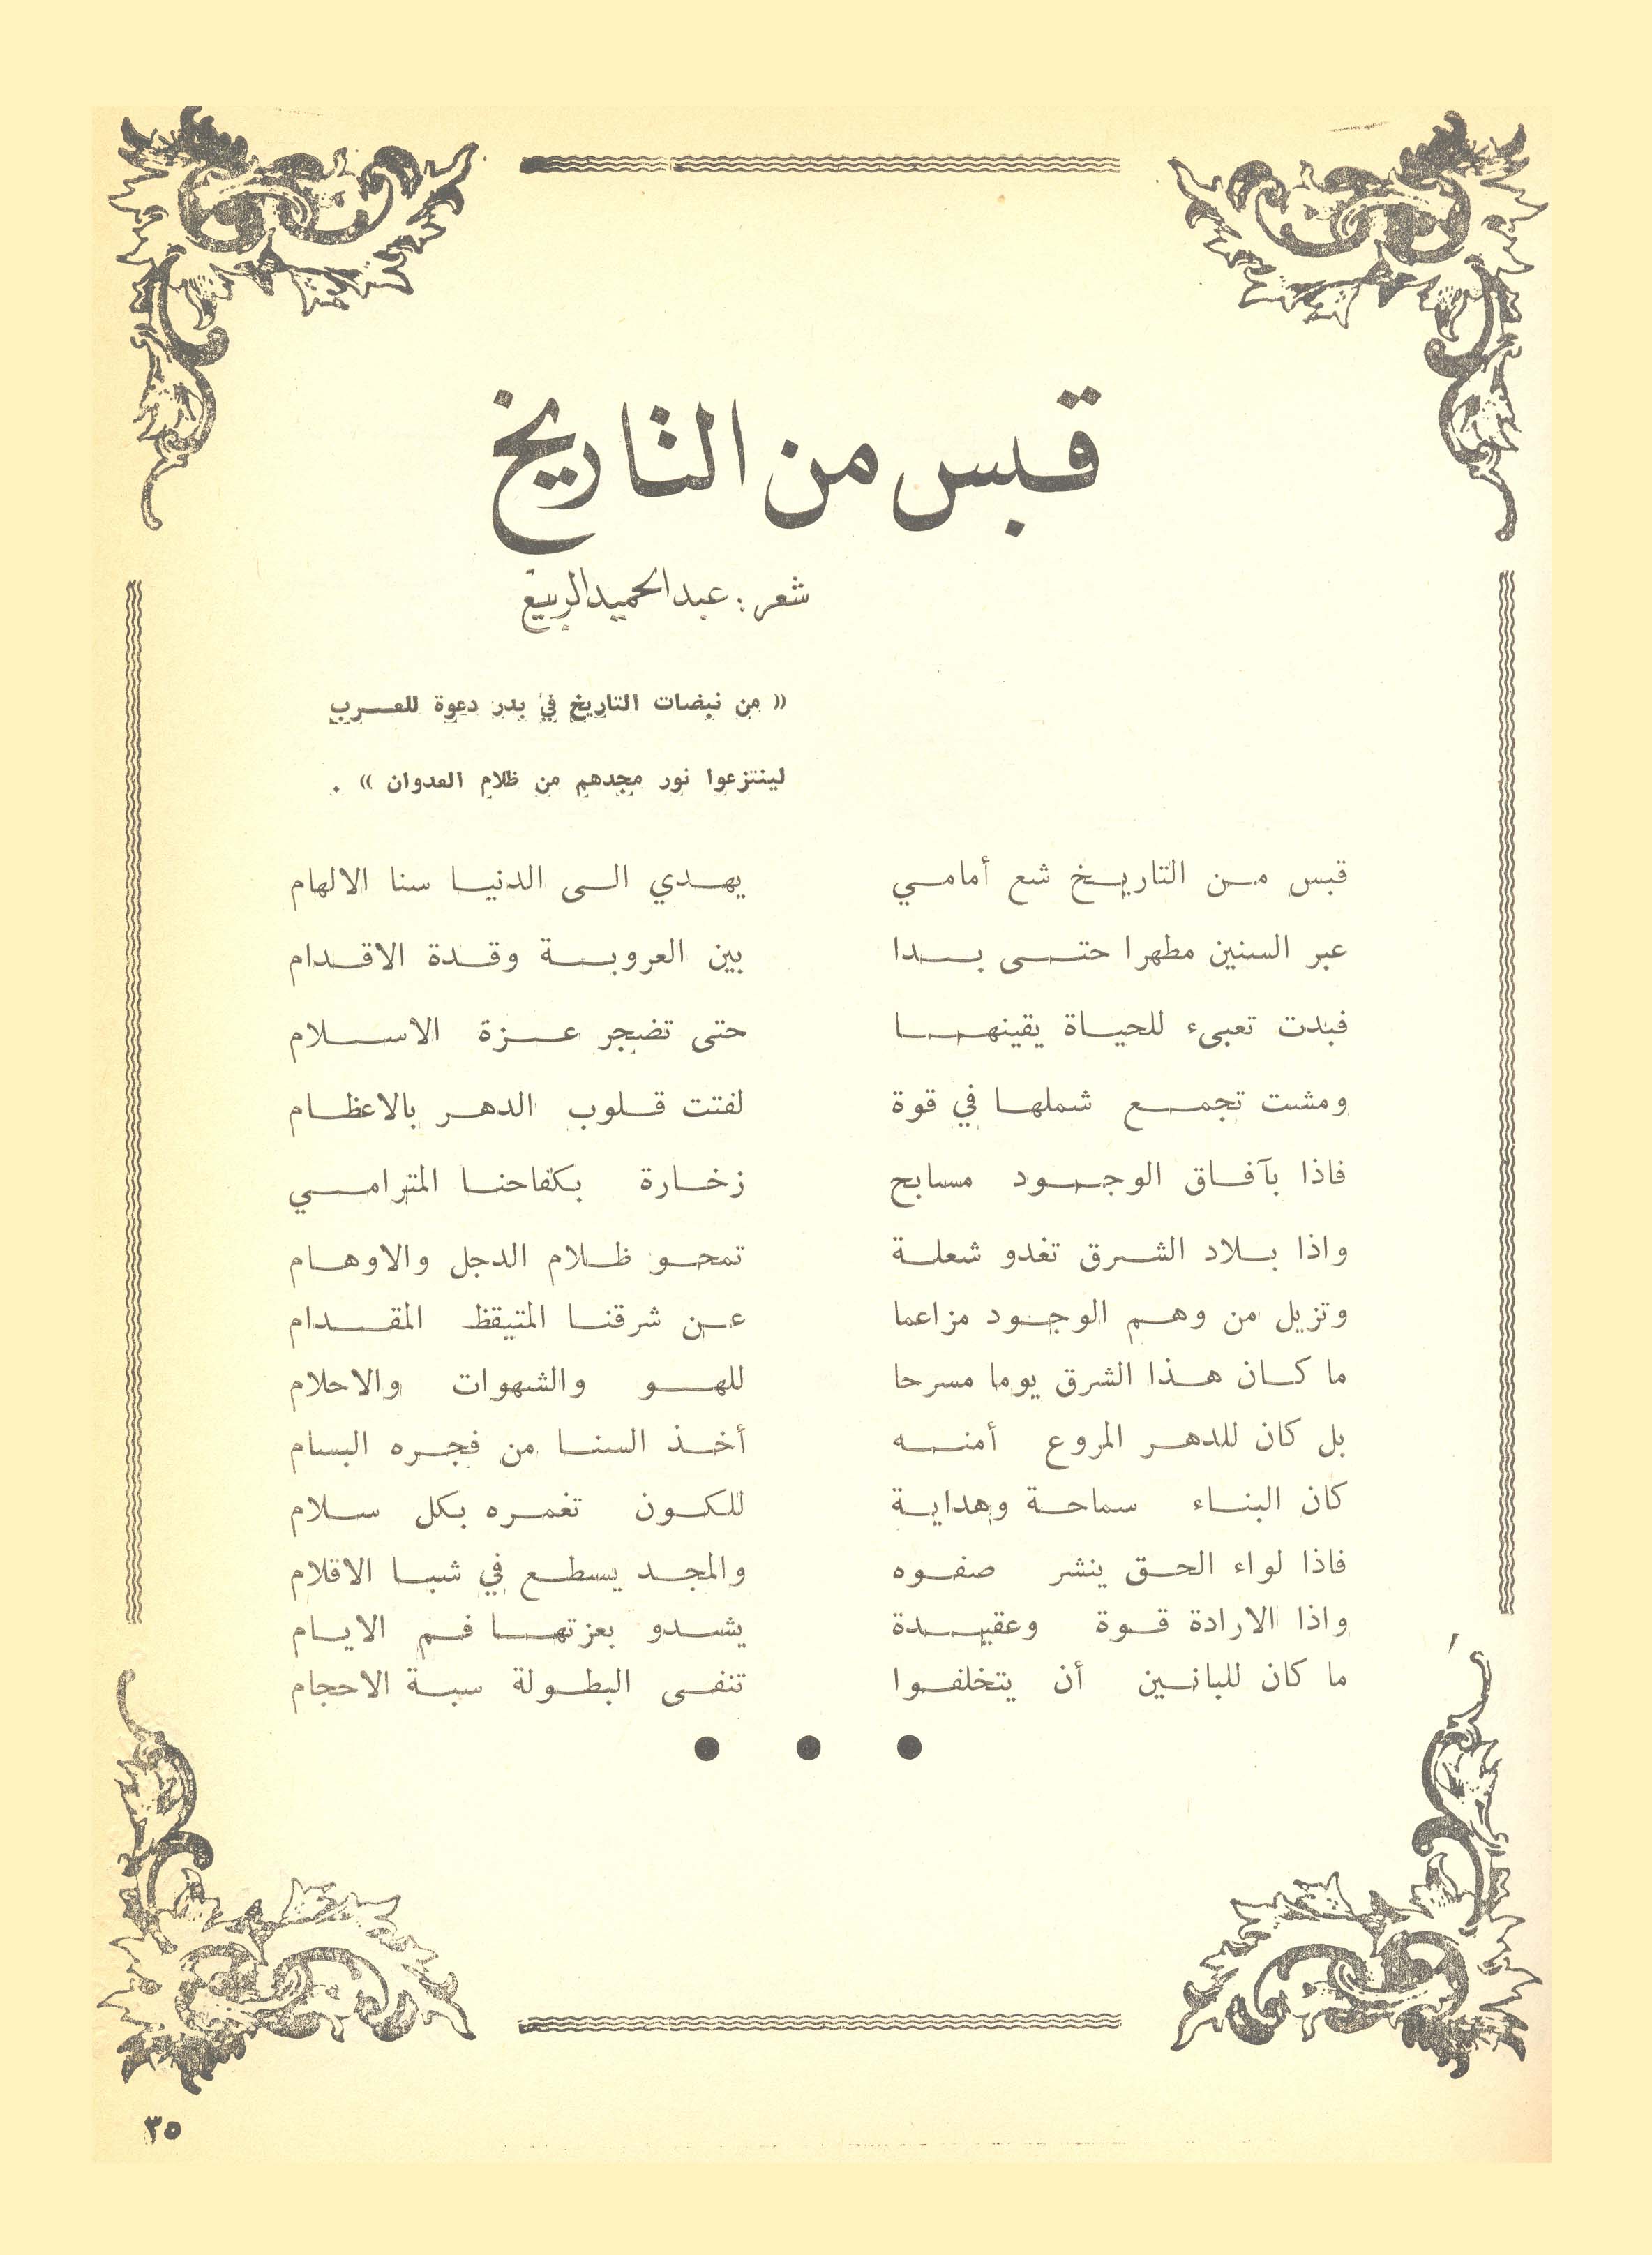 قبس من التاريخ
شعر : عبد الحميد الربيع
(( من نبضات التاريخ في بدر دعوة للعرب
لينتزعوا نور مجدهم من ظلام العدوان )) .
قبس من التاريخ شع أمامي يهدي الى الدنيا سنا الالهام
عبر السنين مطهرا حتى بدا بين العروبة وقدة الاقدام
فبدت تعبىء للحياة يقينها حتى تضجر عزة الاسلام
ومشت تجمع شملها في قوة لفتت قلوب الدهر بالاعظام
فاذا بآفاق الوجود مسابح زخارة بكفاحنا المترامي
واذا بلاد الشرق تغدو شعلة تمحو ظلام الدجل والاوهام
وتزيل من وهم الوجود مزاعما عن شرقنا المتيقظ المقدام
ما كان هذا الشرق يوما مسرحا للهو والشهوات والاحلام
بل كان للدهر المروع أمنه أخذ السنا من فجره البسام
كان البناء سماحة وهداية للكون تغمره بكل سلام
فاذا لواء الحق ينشر صفوه والمجد يسطع في شبا الاقلام
واذا الارادة قوة وعقيدة يشدو بعزتها فم الايام
ما كان للبانين أن يتخلفوا تنفى البطولة سبة الاحجام
٣٥